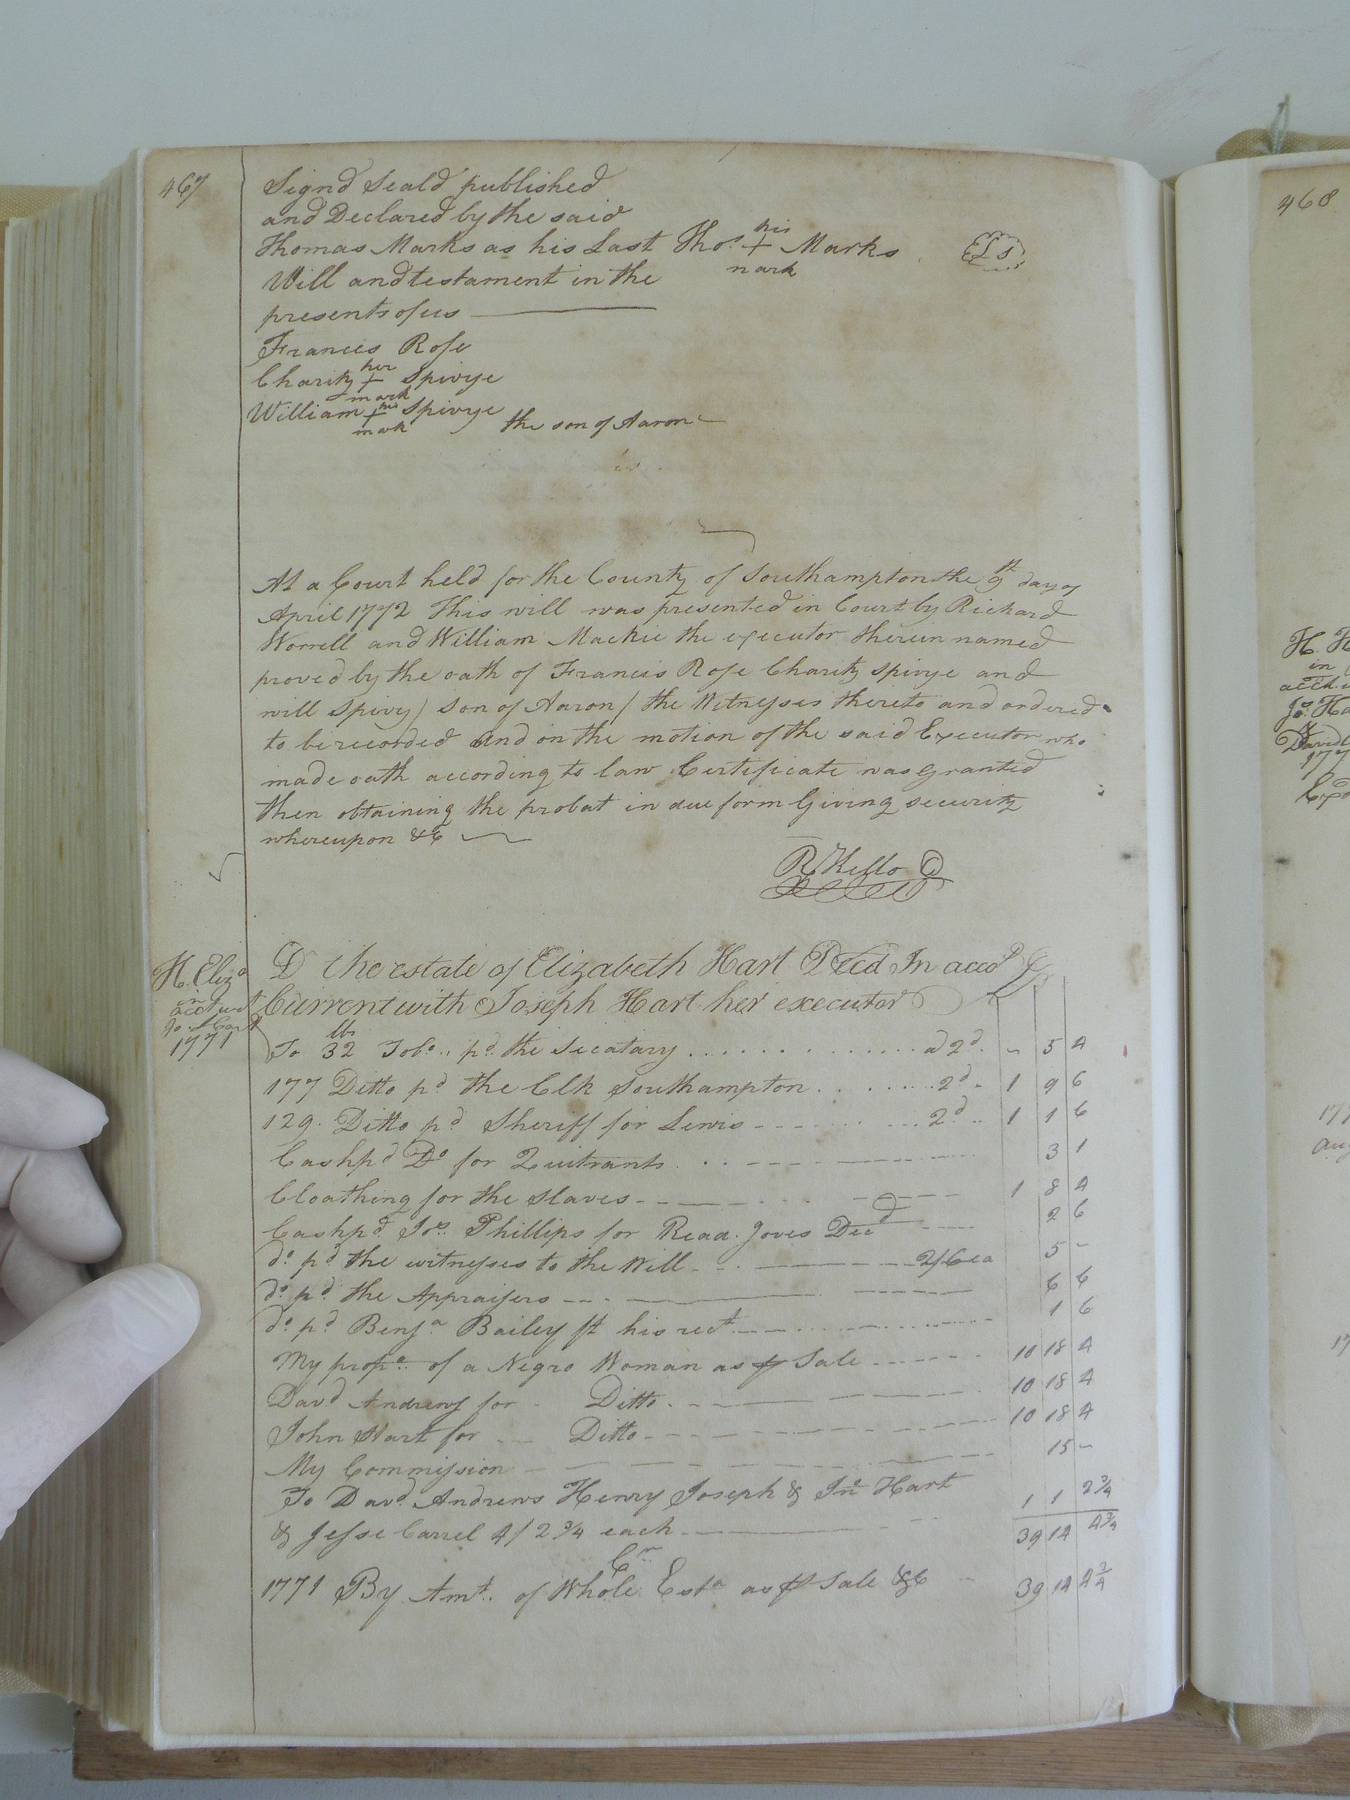 467
Signd Seald published
and Declared by the said
Thomas Marks as his Last Thos. his + mark Marks Ls
Will and testament in the
presents of us
Francis Rose
Charity her + mark Spivye
William his + mark Spivye the son of Aaron
At a Court held for the County of Southampton the 9th day of
April 1772 This will was presented in Court by Richard
Worrell and William Mackie the executor therein named
proved by the oath of Francis Rose Charity Spivye and
will Spivy / son of Aaron / the Witnesses thereto and ordered
to be recorded And on the motion of the said Executor who
made oath according to law Certificate was granted
then obtaining the probat in due form Giving security
whereupon &c
R Kello
H. Eliza
in
acct wt
Jo. Hart
1771
Dr the estate of Elizabeth Hart Decd In accot
Current with Joseph Hart her executor
To 32 lbs Tobo. pd. the Secatary a 2d. - 5 4
177 Ditto pd the Clk Southampton 2d. 1 9 6
129. Ditto pd Sheriff for Lewis 2d 1 1 6
Cash pd Do for Quitrants 3 1
Cloathing for the slaves 1 8 4
Cash pd Jos. Phillips for Read. Joves Decd 2 6
do pd the witnesses to the Will 2/6 ea 5 -
do pd the Appraisers 6 6
do pd Benja Bailey pr his rect. 1 6
My propo. of a Negro Woman as pr Sale 10 18 4
David Andrews for Ditto 10 18 4
John Hart for Ditto 10 18 4
My Commission 15 -
To David Andrews Henry Joseph & Jno Hart
& Jesse Carrel 4/2 3/4 each 1 1 2 3/4
39 14 4 3/4
Cr
1771 By Amt. of Whole Esta as pr Sale &c 39 14 4 3/4
468
H. H
in
Jo. Ha
&
David
177